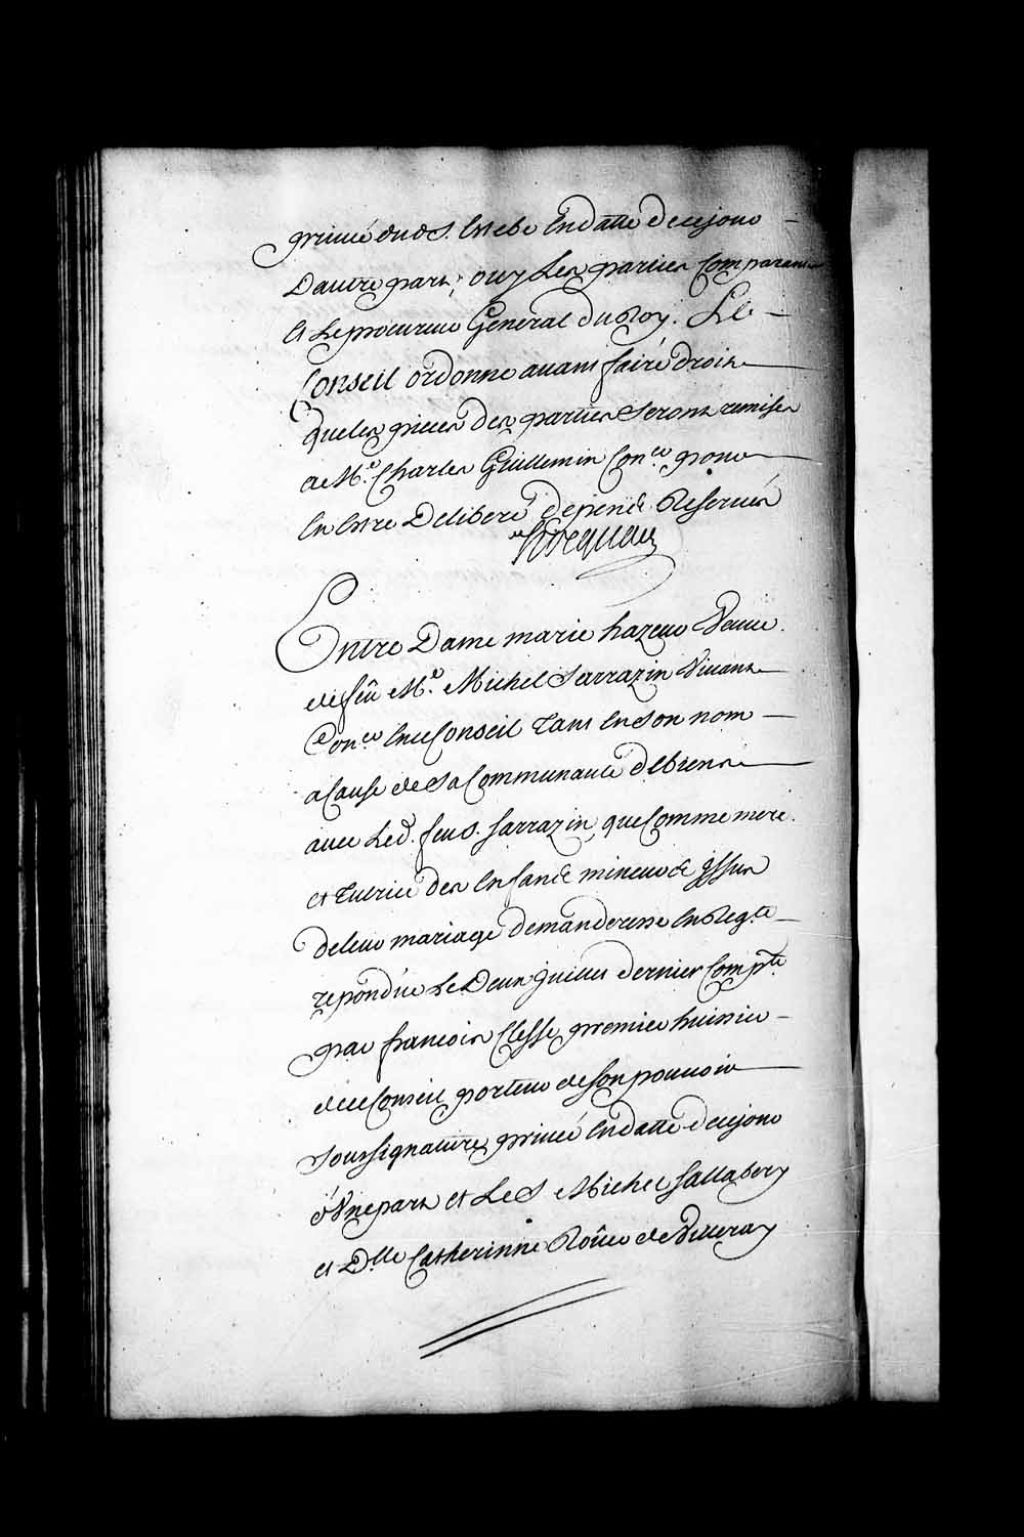 privé dud S. Lusebe En datte de cejour
Dautre part; ouy Les parties Comparantes
Et Le procureur General du Roy. Le
Conseil ordonne avant faire droit
que les pieces des parties seront remises
a Me. Charles Guillemin Coner. pour
En Estre Deliberé depends Reservés
hocquart
Entre Dame marie hazeur Veuve
de feu Me. Michel Sarrazin Vivant
Coner. En ce Conseil tant En son nom
a Cause de sa Communauté de biens
avec Led. feu S. Sarrazin, que Comme mere
et tutrice des Enfans mineurs issus
de leur mariage demanderesse En Regte
repondüe Le Deux juillet dernier Compte
par francois Clesse premier huissier
de ce Conseil porteur de son pouvoir
sous signature privée En datte de cejour
d'Vne part et Le S Michel Sallabery
et Dlle Catherinne Roüer de Villeray